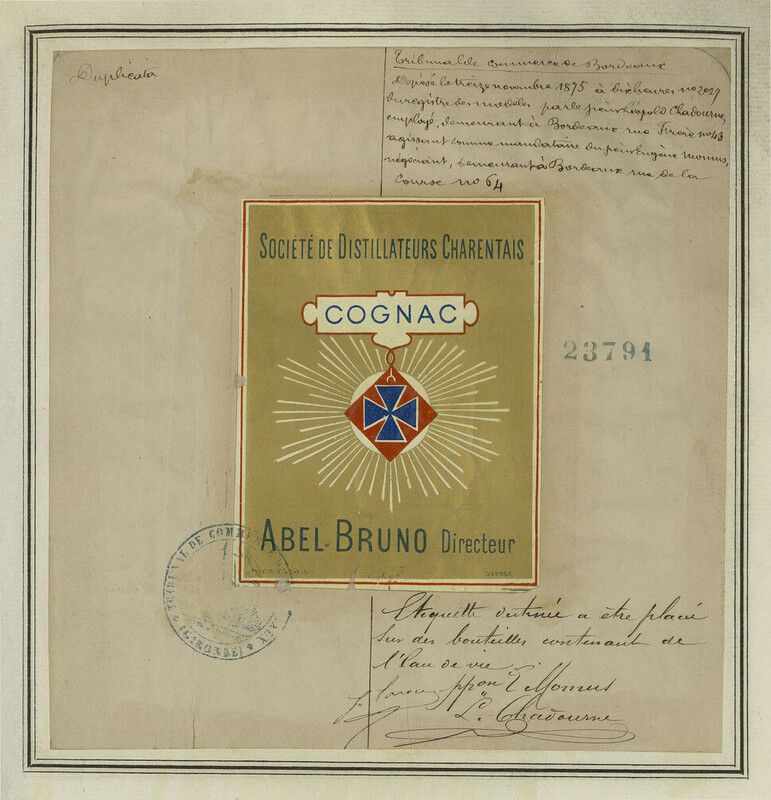 Duplicata
Tribunal de commerce de Bordeaux
Déposé le treize novembre 1875 à dix heures no 2029
du registre des modèles par le sieur Léopold Chadourne,
employé, demeurant à Bordeaux rue no 43
agissant comme mandataire du sieur Eugène Momus,
négociant, demeurant à Bordeaux rue de la
Course no 64
SOCIÉTÉ DE DISTILLATEURS CHARENTAIS
COGNAC
23791
ABEL-BRUNO Directeur
DÉPOSÉ
TRIBUNAL DE COMMERCE
(GIRONDE)
Etiquette destinée a être placée
sur des bouteilles contenant de
l'Eau de vie
ppon E Momus
L. Chadourne